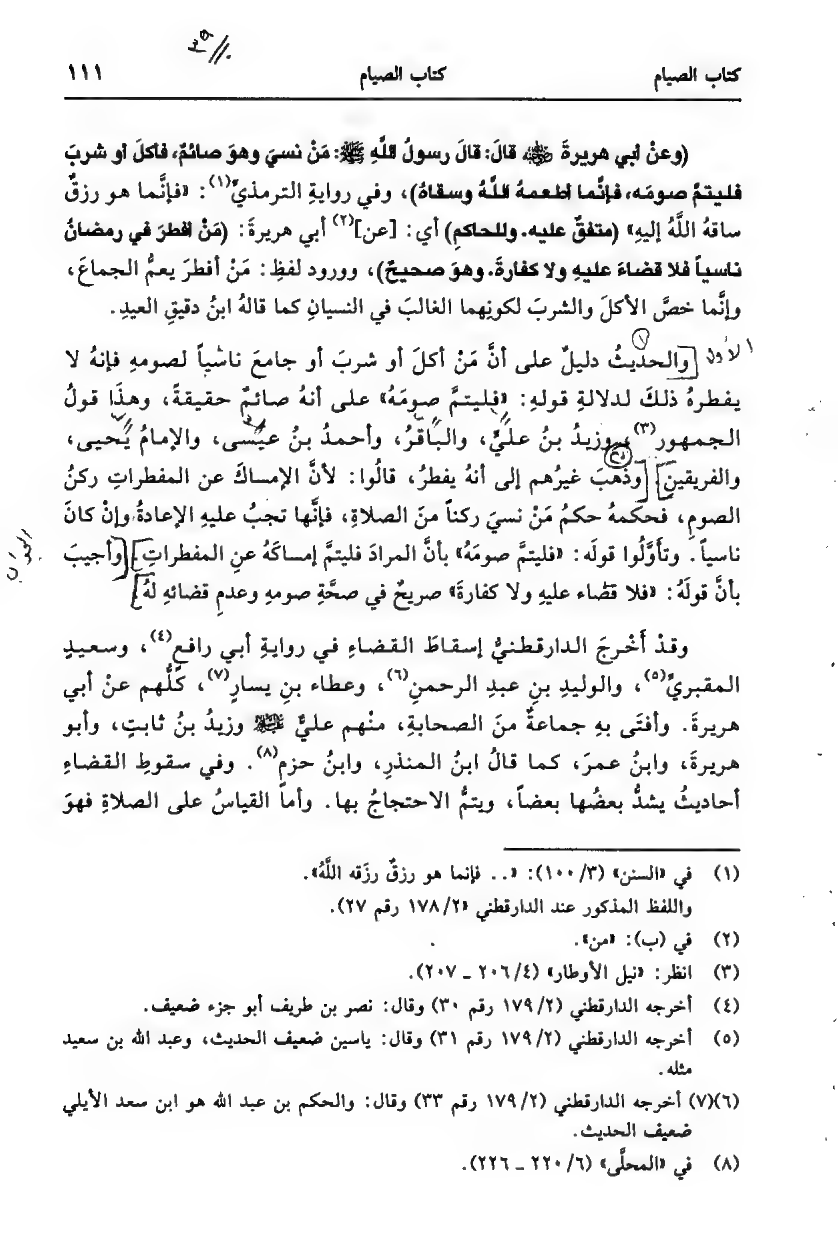 ٣٩//.
كتاب الصيام كتاب الصيام ١١١
(وعنْ أبي هريرةَ رضي الله عنه قالَ: قالَ رسولُ اللَّهِ ﷺ: مَنْ نسيَ وهوَ صائمٌ، فأكلَ أو شربَ
فليتمَّ صومَه، فإنَّما أطعمهُ اللَّهُ وسقاهُ)، وفي روايةِ الترمذيِّ(١): «فإنَّما هو رزقٌ
ساقهُ اللَّهُ إليهِ» (متفقٌ عليه. وللحاكمِ) أي: [عن](٢) أبي هريرةَ: (مَنْ أفطرَ في رمضانَ
ناسياً فلا قضاءَ عليهِ ولا كفارةَ. وهوَ صحيحٌ)، وورود لفظِ: مَنْ أفطرَ يعمُّ الجماعَ،
وإنَّما خصَّ الأكلَ والشربَ لكونِهما الغالبَ في النسيانِ كما قالهُ ابنُ دقيقِ العيدِ.
الأول [والحديثُ دليلٌ على أنَّ مَنْ أكلَ أو شربَ أو جامعَ ناسياً لصومهِ فإنهُ لا
يفطرهُ ذلكَ لدلالةِ قولهِ: «فليتمَّ صومَهُ» على أنهُ صائمٌ حقيقةً، وهذَا قولُ
الجمهورِ(٣)، وزيدُ بنُ عليٍّ، والباقرُ، وأحمدُ بنُ عيسَى، والإمامُ يحيى،
والفريقينِ] [وذهبَ غيرُهم إلى أنهُ يفطرُ، قالُوا: لأنَّ الإمساكَ عن المفطراتِ ركنُ
الصومِ، فحكمهُ حكمُ مَنْ نسيَ ركناً منَ الصلاةِ، فإنَّها تجبُ عليهِ الإعادةُ وإنْ كانَ
ناسياً. وتأوَّلُوا قولَه: «فليتمَّ صومَهُ» بأنَّ المرادَ فليتمَّ إمساكَهُ عنِ المفطراتِ] [وأجيبَ
بأنَّ قولَهُ: «فلا قضاء عليهِ ولا كفارةَ» صريحٌ في صحَّةِ صومهِ وعدمِ قضائهِ لهُ]
وقدْ أخْرجَ الدارقطنيُّ إسقاطَ القضاءِ في روايةِ أبي رافعٍ(٤)، وسعيدٍ
المقبريِّ(٥)، والوليدِ بنِ عبدِ الرحمنِ(٦)، وعطاء بنِ يسارٍ(٧)، كلُّهم عنْ أبي
هريرةَ. وأفتَى بهِ جماعةٌ منَ الصحابةِ، منْهم عليٌّ عليه السلام وزيدُ بنُ ثابتٍ، وأبو
هريرةَ، وابنُ عمرَ، كما قالُ ابنُ المنذرِ، وابنُ حزمٍ(٨). وفي سقوطِ القضاءِ
أحاديثُ يشدُّ بعضُها بعضاً، ويتمُّ الاحتجاجُ بها. وأما القياسُ على الصلاةِ فهوَ
(١) في «السنن» (٣/ ١٠٠): «.. فإنما هو رزقٌ رزَقه اللَّهُ».
واللفظ المذكور عند الدارقطني «٢/ ١٧٨ رقم ٢٧).
(٢) في (ب): «من».
(٣) انظر: «نيل الأوطار» (٤/ ٢٠٦ ـ ٢٠٧).
(٤) أخرجه الدارقطني (٢/ ١٧٩ رقم ٣٠) وقال: نصر بن طريف أبو جزء ضعيف.
(٥) أخرجه الدارقطني (٢/ ١٧٩ رقم ٣١) وقال: ياسين ضعيف الحديث، وعبد الله بن سعيد
مثله.
(٦)(٧) أخرجه الدارقطني (٢/ ١٧٩ رقم ٣٣) وقال: والحكم بن عبد الله هو ابن سعد الأيلي
ضعيف الحديث.
(٨) في «المحلَّى» (٦/ ٢٢٠ ـ ٢٢٦).